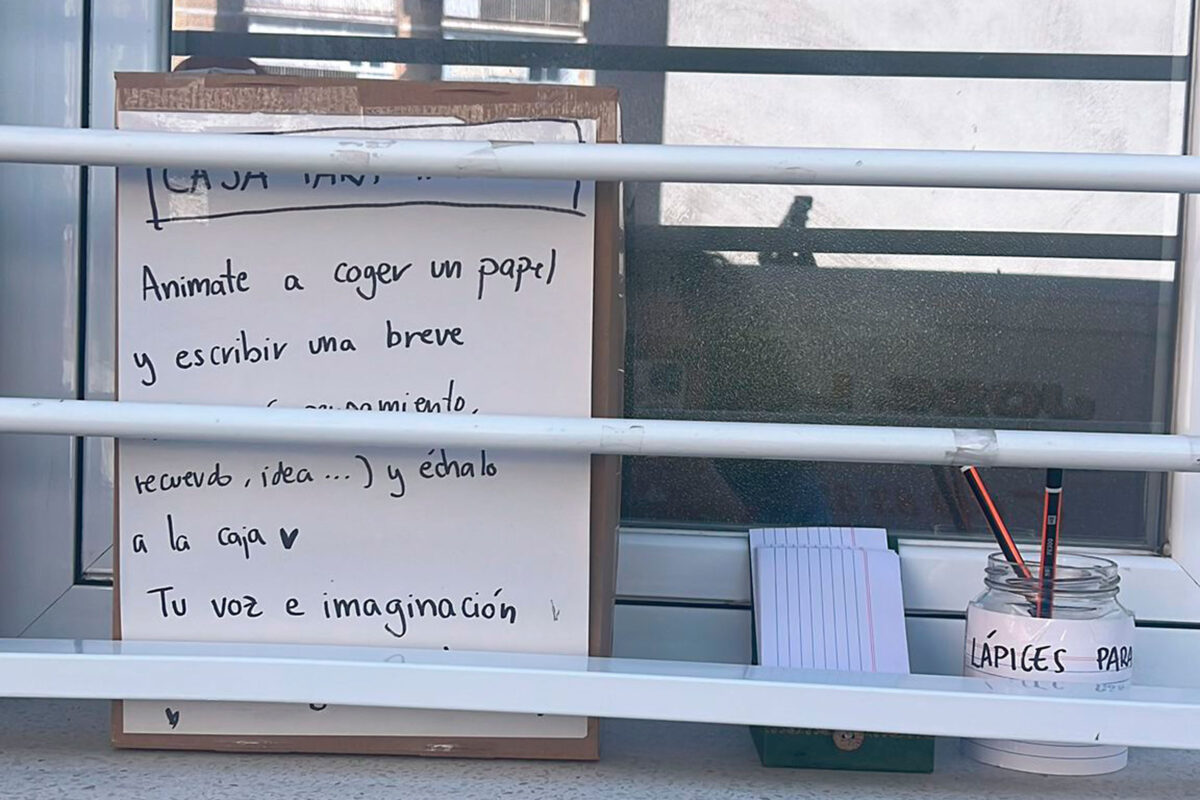 CAJA
Animate a coger un papel
y escribir una breve
recuerdo, idea...) y échalo
a la caja ♥
Tu voz e imaginación
LÁPICES PARA